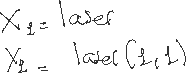 X₁ = laser
X₂ = laser(1,1)